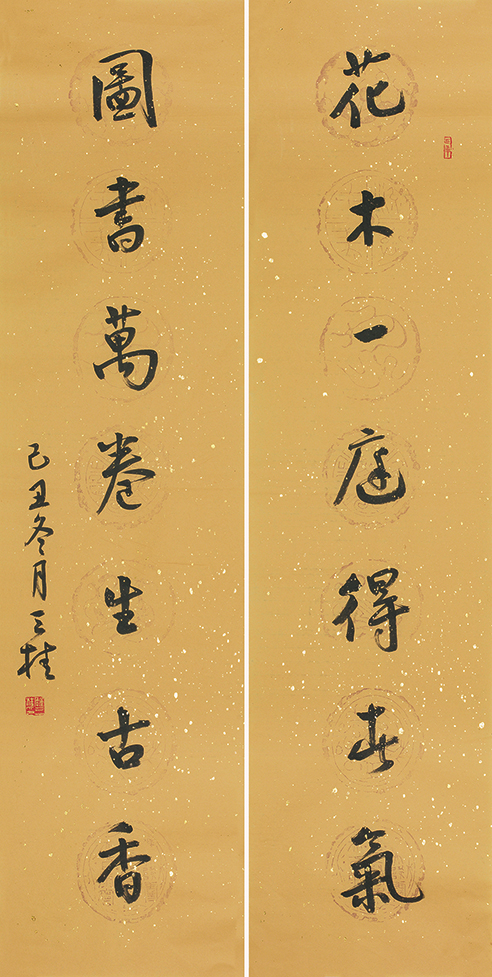 花木一庭得春氣
圖書萬卷生古香
己丑冬月